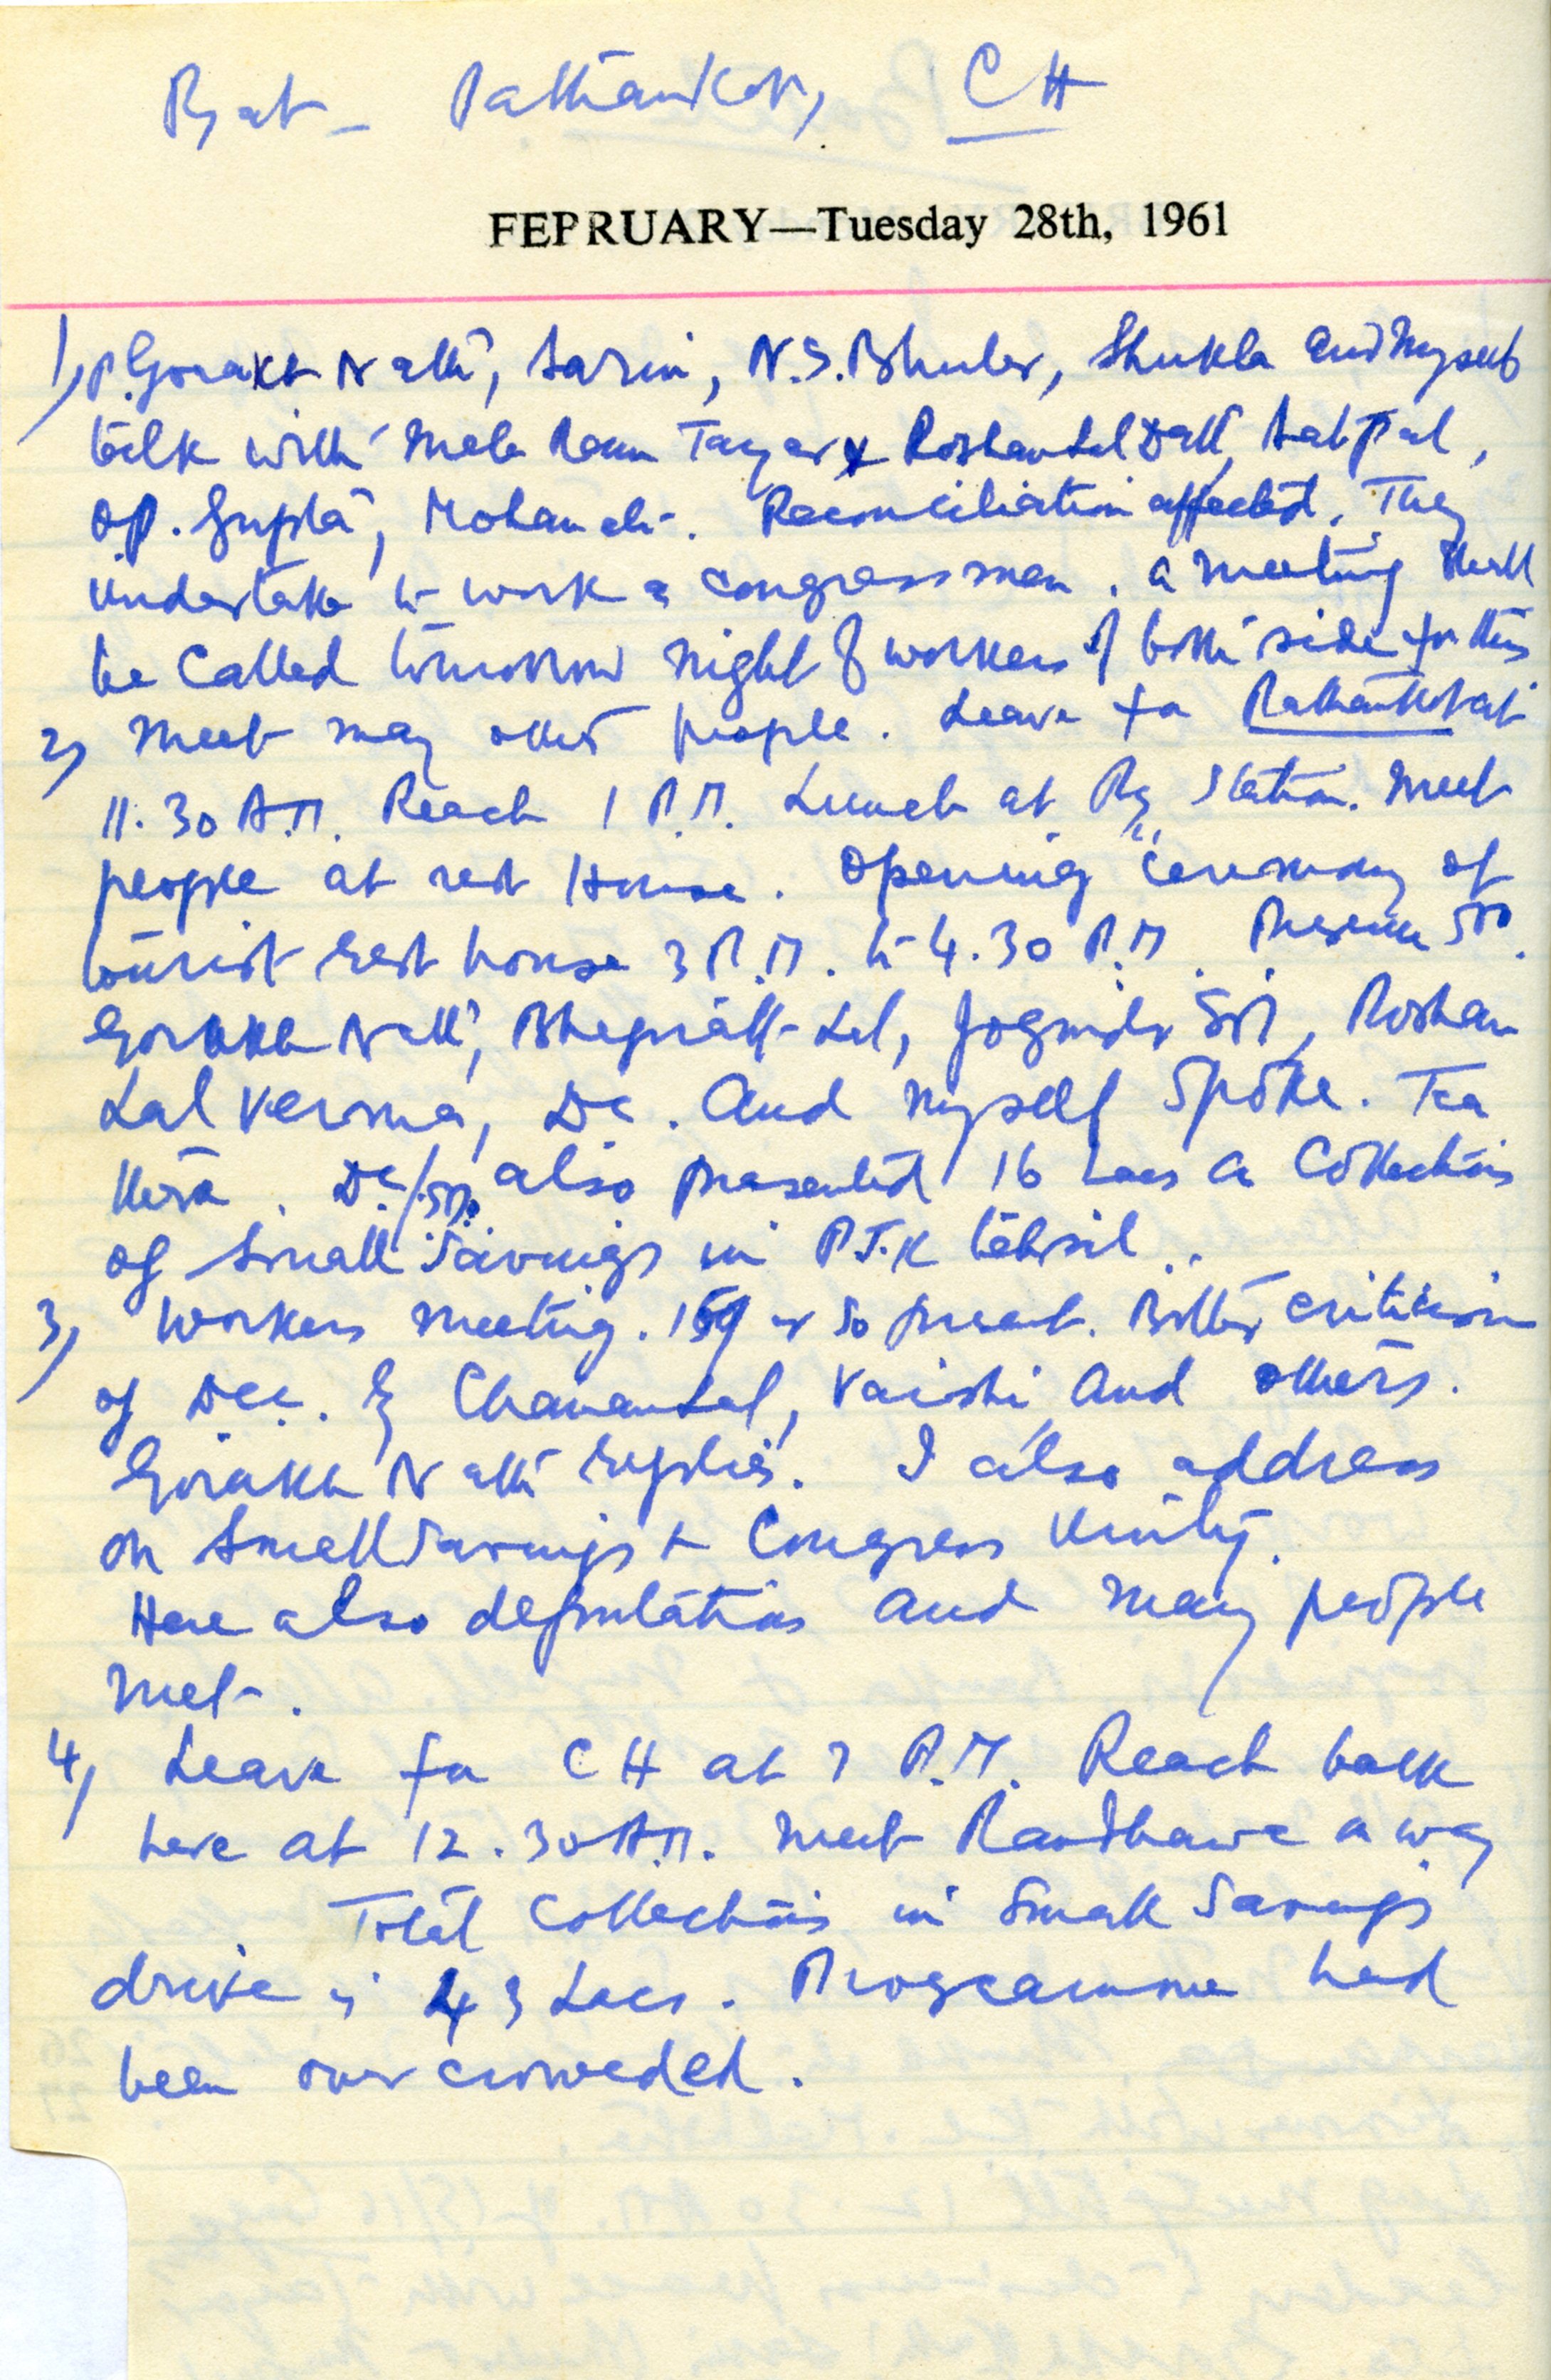 Pathankot, CH
FEPRUARY—Tuesday 28th, 1961
1) P. Gorakh Nath, Sarin, N.S. Bhuler, Shukla and Myself
talk with Mela Ram Tayar & Roshan Lal Datt, Satpal,
O.P. Gupta, Mohan etc. Reconciliation affected. They
undertake to work as Congressmen. A meeting shall
be called tomorrow night of workers of both side for this
2) Meet many other people. Leave for Pathankot at
11.30 A.M. Reach 1 P.M. Lunch at Ry Station. Meet
people at rest House. Opening ceremony of
tourist rest house 3 P.M. to 4.30 P.M. Presence 500.
Gorakh Nath, Bhagirath Lal, Joginder, Roshan
Lal Verma, DC. And myself spoke. Tea
there. DC also presented 16 Lacs as Collections
of Small Savings in P.T.K tehsil.
3) Workers meeting. 150 or so present. Bitter criticism
of DCC. by Chaman Lal, Vaishi and others.
Gorakh Nath replies. I also address
on Small Savings & Congress Unity.
Here also deputations and many people
met.
4) Leave for CH at 7 P.M. Reach back
here at 12.30 A.M. Meet Randhawa on way
Total Collections in Small Savings
drive is 43 Lacs. Programme had
been over crowded.